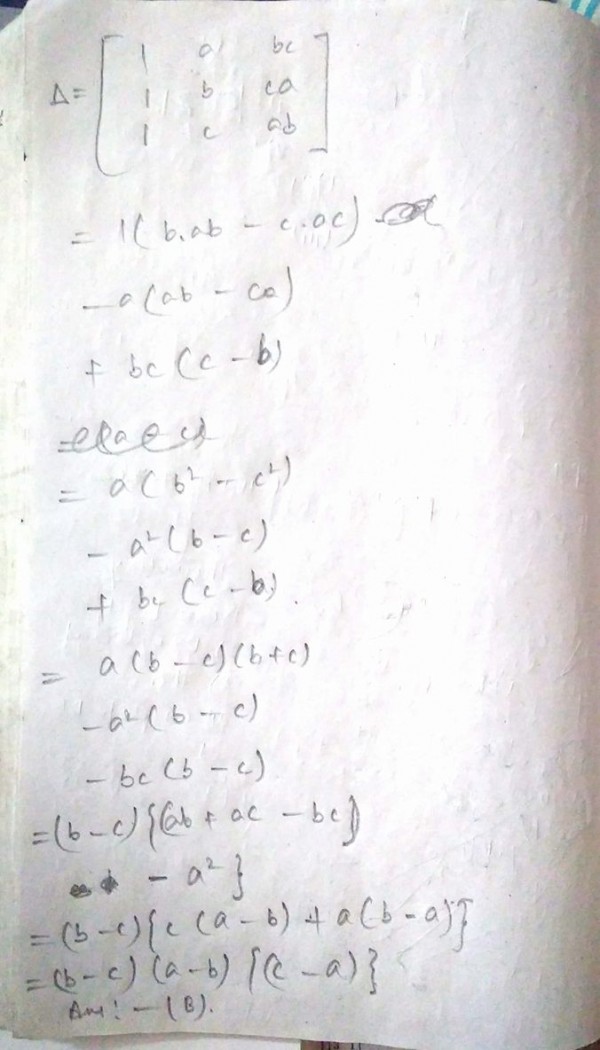 Δ = [ 1 a bc
1 b ca
1 c ab ]
= 1(b.ab - c.ac)
- a(ab - ca)
+ bc(c - b)
= a(b² - c²)
- a²(b - c)
+ bc(c - b).
= a(b - c)(b + c)
- a²(b - c)
- bc(b - c)
= (b - c){(ab + ac - bc)
- a²}
= (b - c){c(a - b) + a(b - a)}
= (b - c)(a - b){(c - a)}
Ans: - (B).